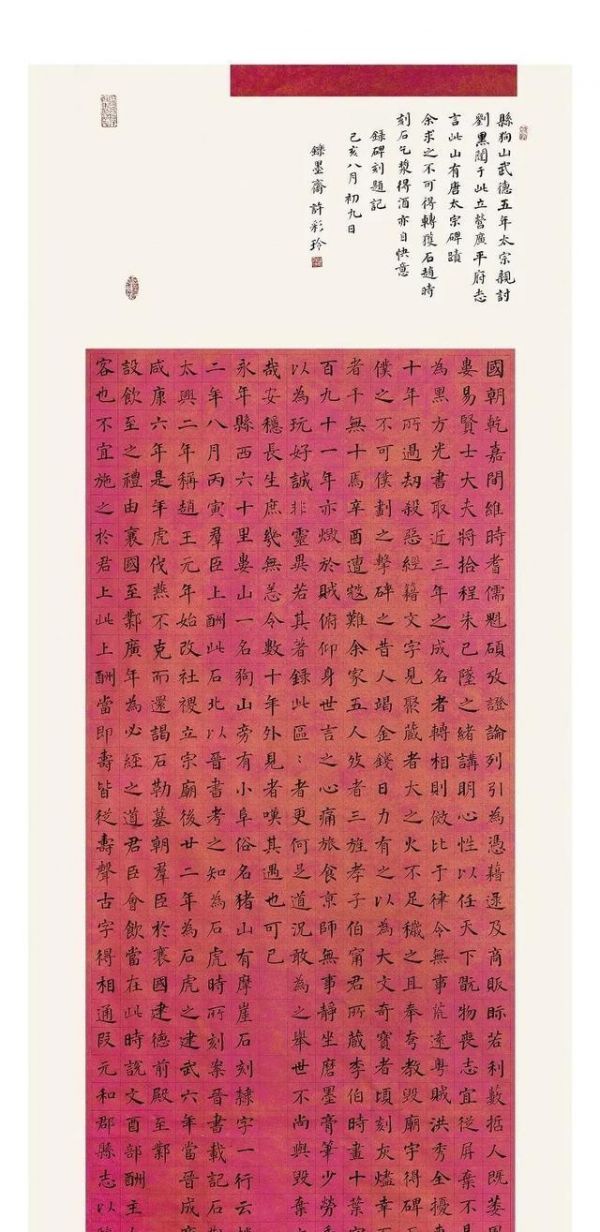 縣狗山武德五年太宗親討
劉黑闥于此立營廣平府志
言此山有唐太宗碑蹟
余求之不可得轉獲石趙時
刻石乞漿得酒亦自快意
錄碑刻題記
己亥八月初九日
鍥墨齋許彩玲
國朝乾嘉間維時耆儒魁碩攷證論列引為憑藉逯及商販眎若利藪悊人既萎
婁易賢士大夫將拾程朱已墜之緒講明心性以任天下翫物喪志宜從屏棄不
為黑方光書取近三年之成名者轉相則傚比于律令無事荒遠粵賊洪秀全擾
十年所過劫殺惡經籍文字見聚藏者大之火不足穢之且奉夸教毀廟宇得碑
僕之不可僕劃之擊碑之昔人竭金錢日力有之以為大文奇寶者頃刻灰燼幸
者千無十焉辛酉遭寇難余家五人攷者三旌孝子伯甯君所藏李伯時畫十葉
百九十一年亦燬於賊俯仰身世言之心痛旅食京師無事靜坐磨墨膏筆少勞
以為玩好誠非靈異若其著錄此區：者更何足道況敢為之舉世不尚與毀棄
哉安穩長生庶幾無恙令數十年外見者嘆其遇也可已
永年縣西六十里婁山一名狗山旁有小阜俗名猪山有摩崖石刻隸字一行云
二年八月丙寅羣臣上酬此石北以晉書考之知為石虎時所刻案晉書載記石
太興二年稱趙王元年始改社稷立宗廟後廿二年為石虎之建武六年當晉成
咸康六年是年虎伐燕不克而還謁石勒墓朝羣臣於襄國建德前殿至鄴
設飲至之禮由襄國至鄴廣年為必經之道君臣會飲當在此時說文酉部酬主
容也不宜施之於君上此上酬當即壽皆從壽聲古字得相通段元和郡縣志以